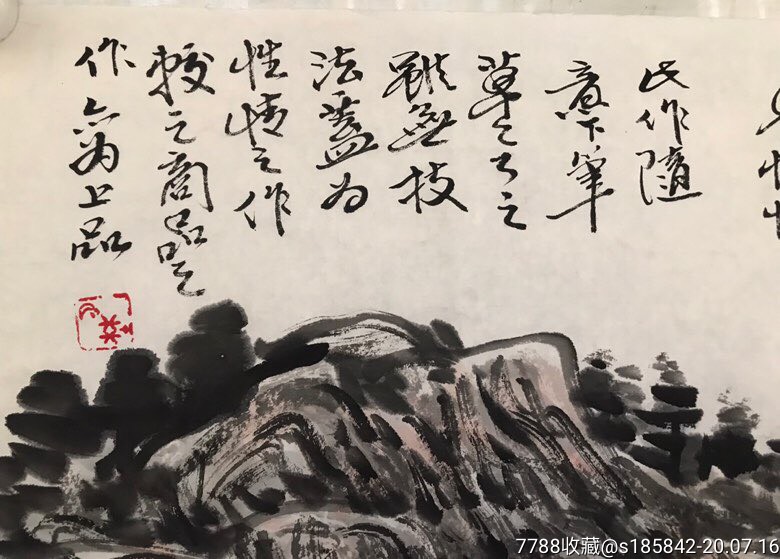 此作隨
意下筆
草草了之
雖無技
法蓋為
性情之作
較之商品之
作亦為上品
7788收藏@s185842-20.07.16